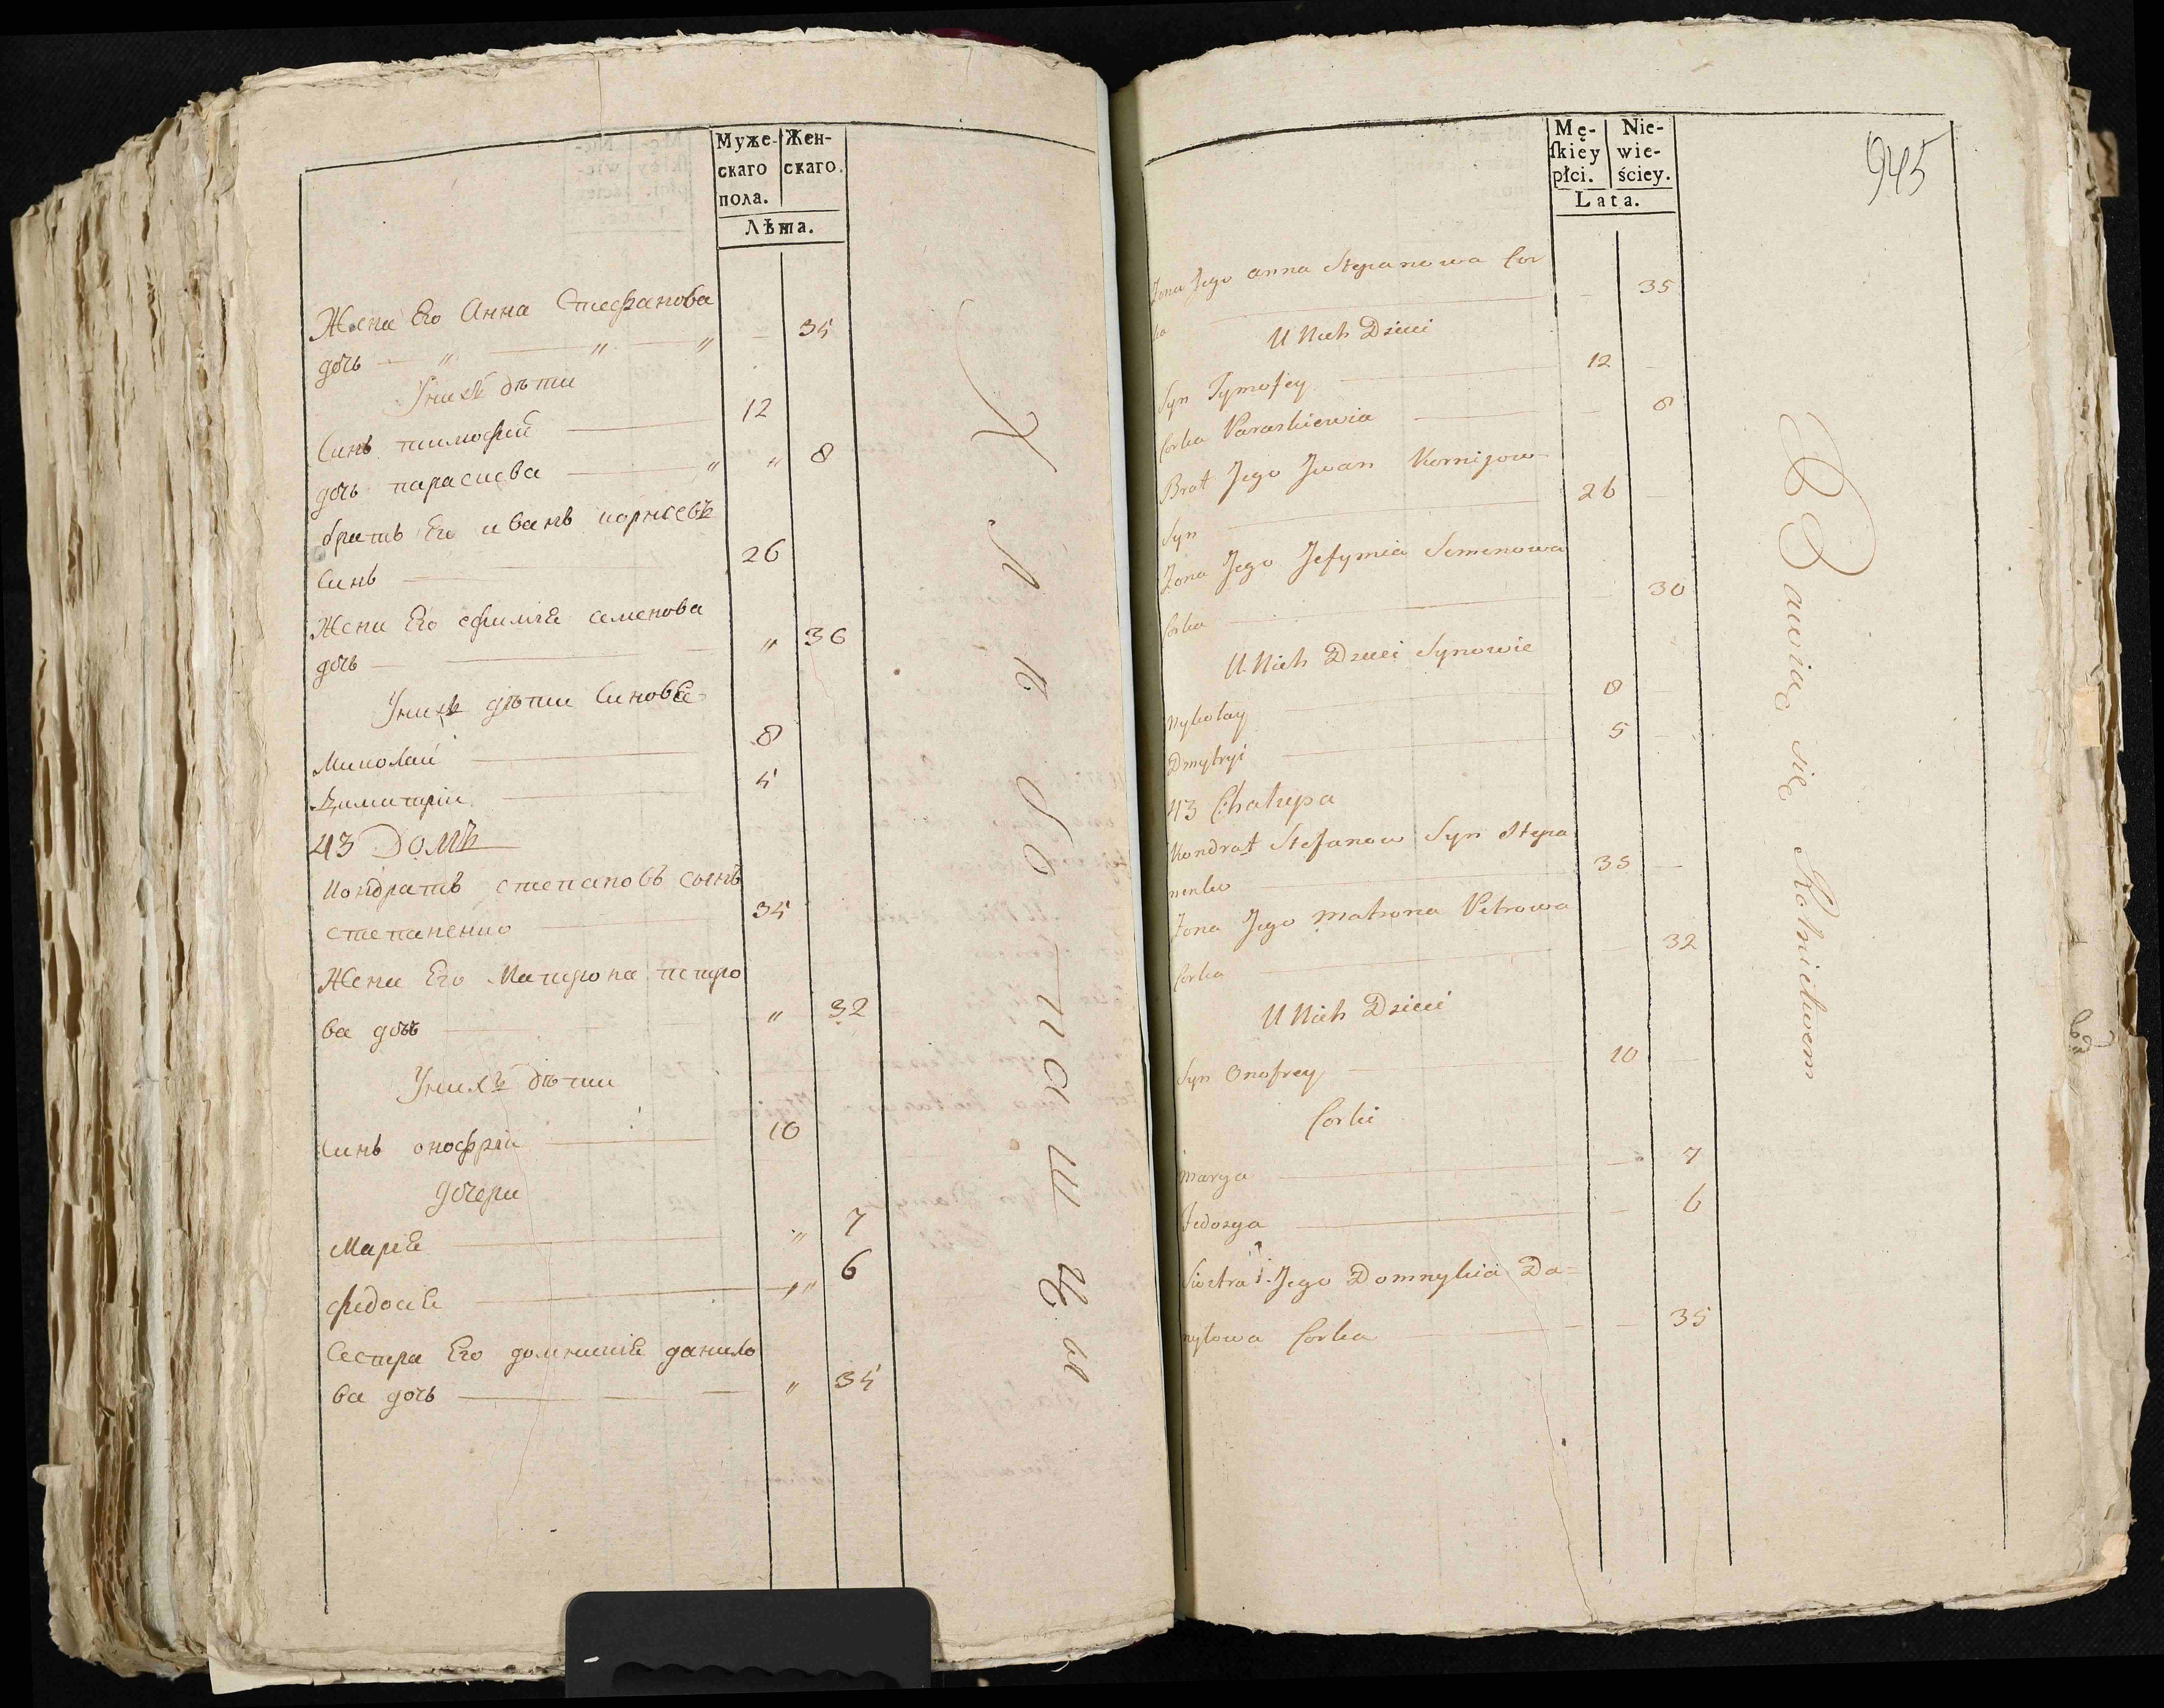 Муже-
скаго
пола.
Жен-
скаго.
Лѣта.
Жена Его Анна Стефанова
дочь — " — " — " — 35
У нихъ дѣти
Синъ тимофей — 12
дочь параскева — " " 8
братъ Его иванъ корнеевъ
Синъ — 26
Жена Его ефимия семенова
дочь — " 36
У нихъ дѣти Синовѣ
Миколай — 8
Димитрій — 5
43 Домъ
Кондратъ степановъ сынъ
степаненко — 35
Жена Его Матрона петро
ва дочь — " 32
У нихъ дѣти
Синъ онофрій — 10
дочери
Марія — " 7
федосія — " 6
Сестра Его домникия данило
ва дочь — " 35
Хлѣбопашцы
945
Mę-
ſkiey
płci.
Nie-
wie-
ściey.
Lata.
Żona Jego anna Stepanowa Cor
ka — 35
U Nich Dzieci
Syn Tymofey — 12 —
Corka Paraskiewia — — 8
Brat Jego Jwan Kornijow
Syn — 26 —
Żona Jego Jefymia Semenowa
Corka — — 30
U Nich Dzieci Synowie
Mykołay — 8 —
Dmytryi — 5 —
43 Chałupa
Kondrat Stefanow Syn Stepa
nenko — 35 —
Żona Jego Matrona Petrowa
Corka — — 32
U Nich Dzieci
Syn Onofrey — 10 —
Corki
Marya — — 7
Fedosya — — 6
Siostra Jego Domnykia Da=
nyłowa Corka — — 35
Bawiąc się Rolnictwem